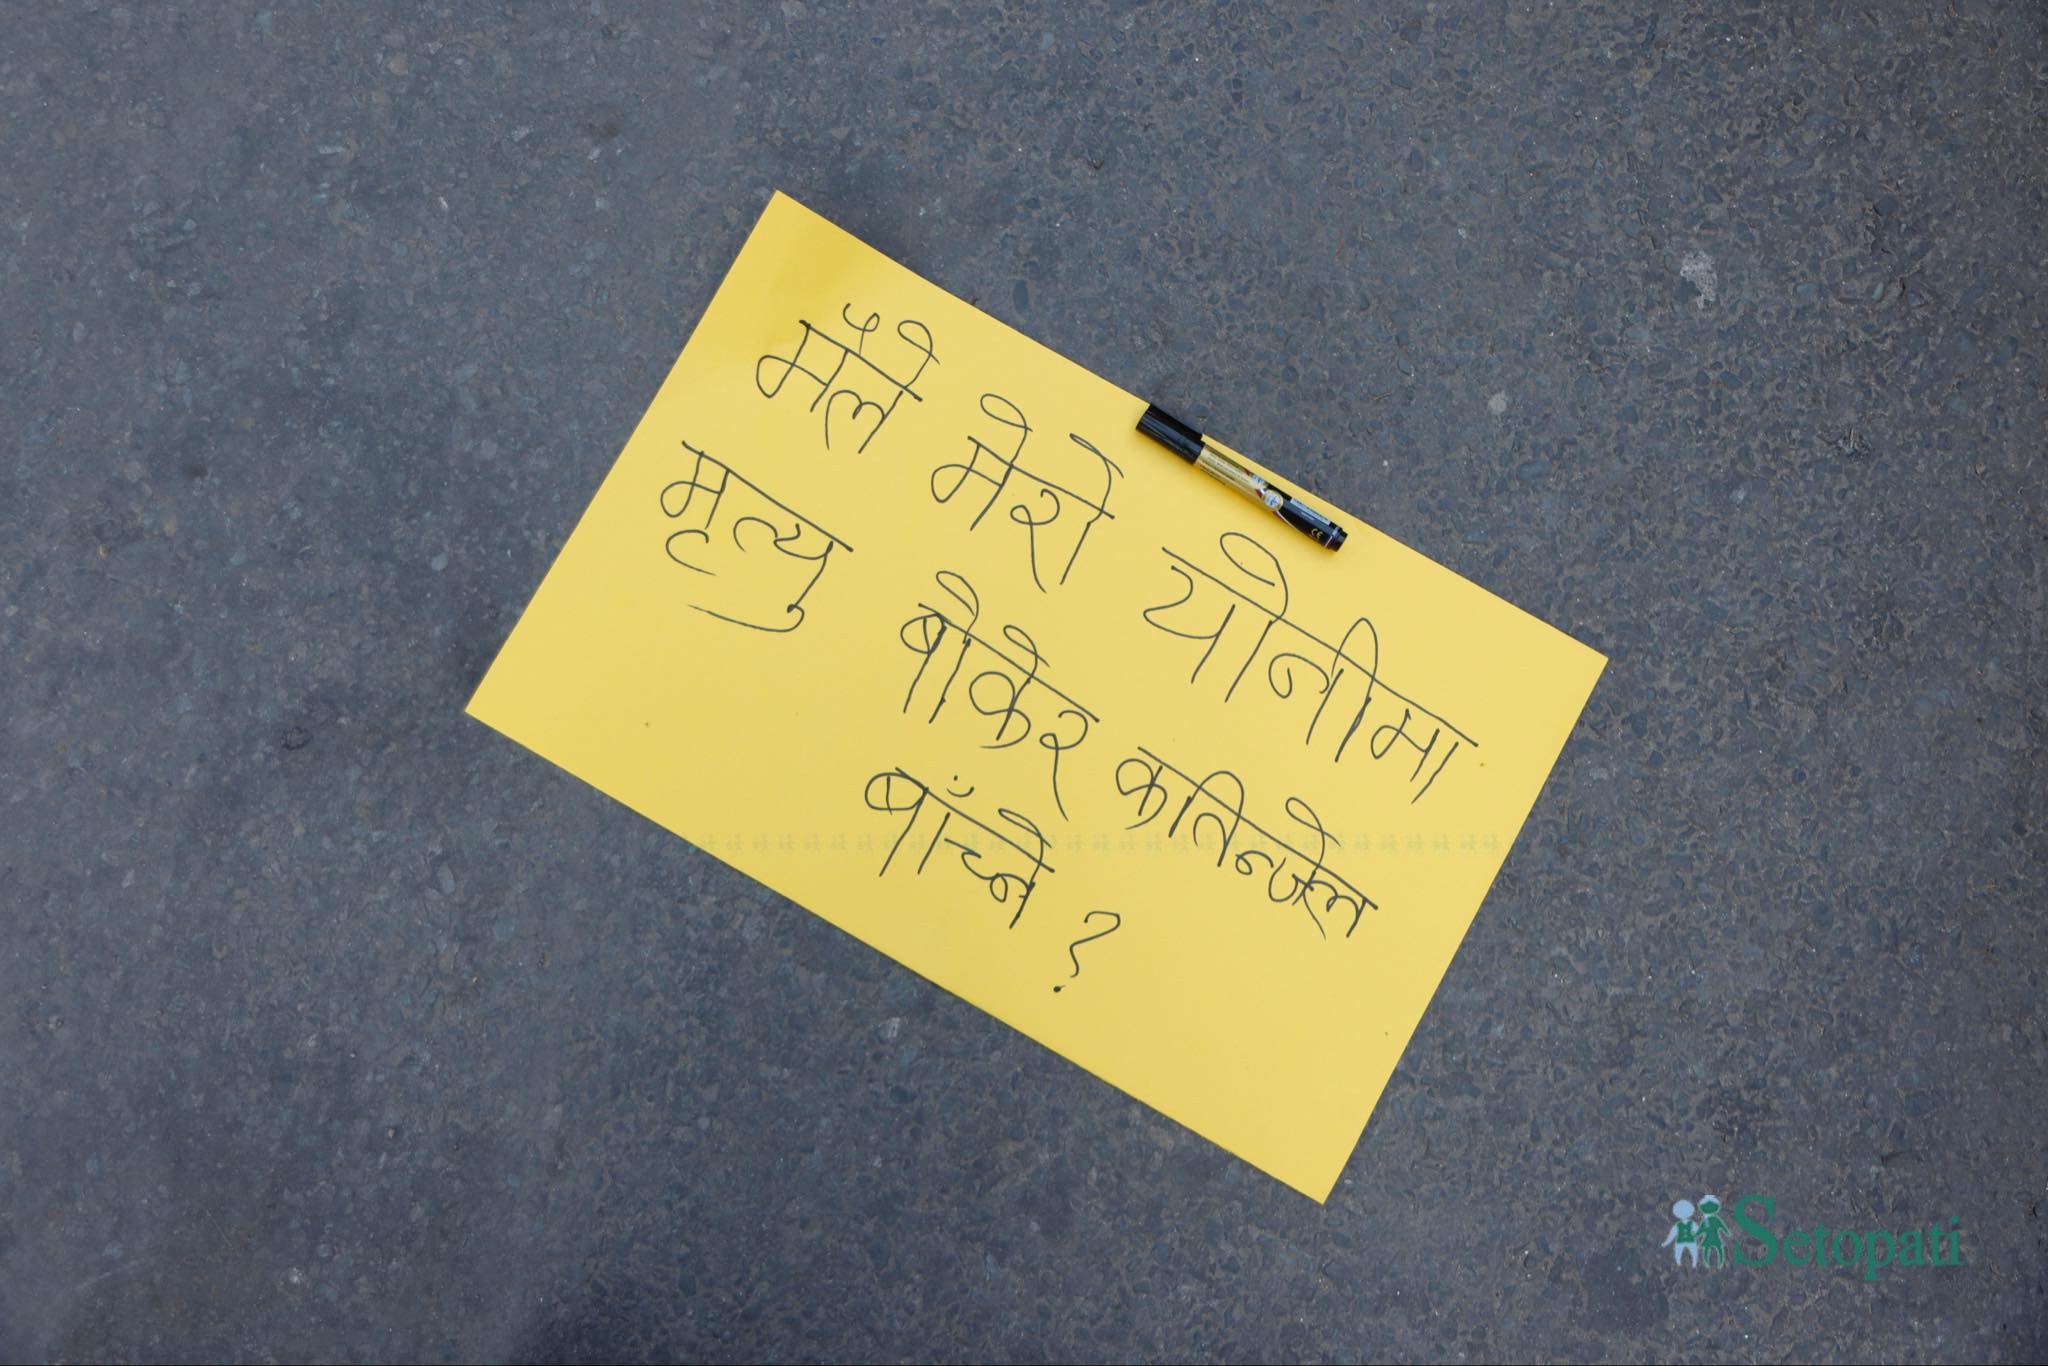 मैँले मेरो योनीमा
मृत्यु बोकेर कतिन्जेल
बाँच्ने ?
Setopati